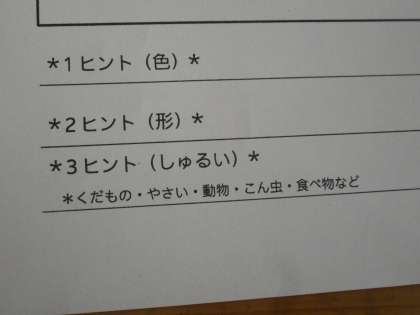 *1ヒント（色）*
*2ヒント（形）*
*3ヒント（しゅるい）*
*くだもの・やさい・動物・こん虫・食べ物など